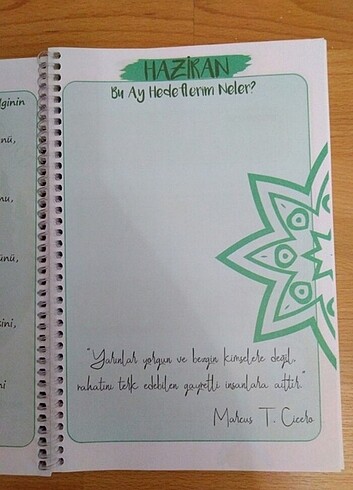 lginin
nü,
mu,
ünü,
kini,
ni
HAZİRAN
Bu Ay Hedeflerim Neler?
"Yarınlar yorgun ve bezgin kimselere değil,
rahatını terk edebilen gayretli insanlara aittir."
Marcus T. Cicero